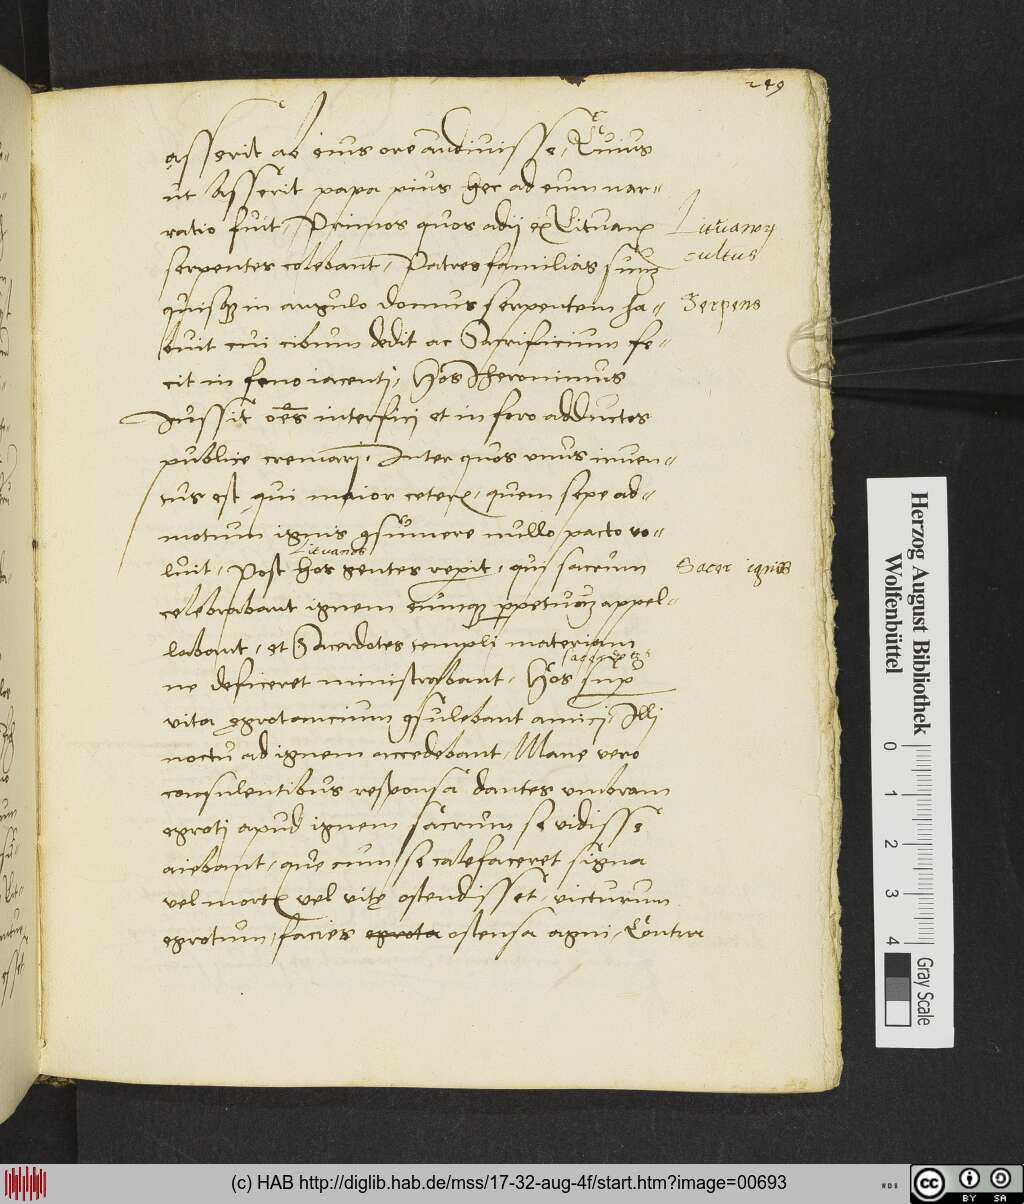 249
asserit ab eius ore audiuisse, Cuius
ut Asserit papa pius hec ad eum nar=
ratio fuit, Primos quos adij ex Lituanis
Lituanorum
cultus
serpentes colebant, Patres familias suum
quisque in angulo domus serpentem ha=
Serpens
buit cui cibum dedit ac Sacrificium fe=
cit in feno iacenti, Hos Iheronimus
Iussit oes interfici et in foro adductos
publice cremari, Inter quos unus inuen=
tus est qui maior ceteris, quem sepe ad=
motum ignis consumere nullo pacto vo=
Lituanos
luit, Post hos gentes reperit, qui sacrum
Sacer ignis
celebrabant ignem eumque perpetuum appel=
labant, et Sacerdotes templi materiam
ne deficeret ministrabant, Hos super
vita egrotancium consulebant amici, Illi
noctu ad ignem accedebant, Mane vero
consulentibus responsa dantes umbram
egroti apud ignem sacrum se vidisse
aiebant, que cum se calefaceret signa
vel mortis vel vite ostendisset, victurum
egrotum, facies egrota ostensa agni, Contra
Herzog August Bibliothek
Wolfenbüttel
0 1 2 3 4
Gray Scale
(c) HAB http://diglib.hab.de/mss/17-32-aug-4f/start.htm?image=00693
WDB
cc BY SA